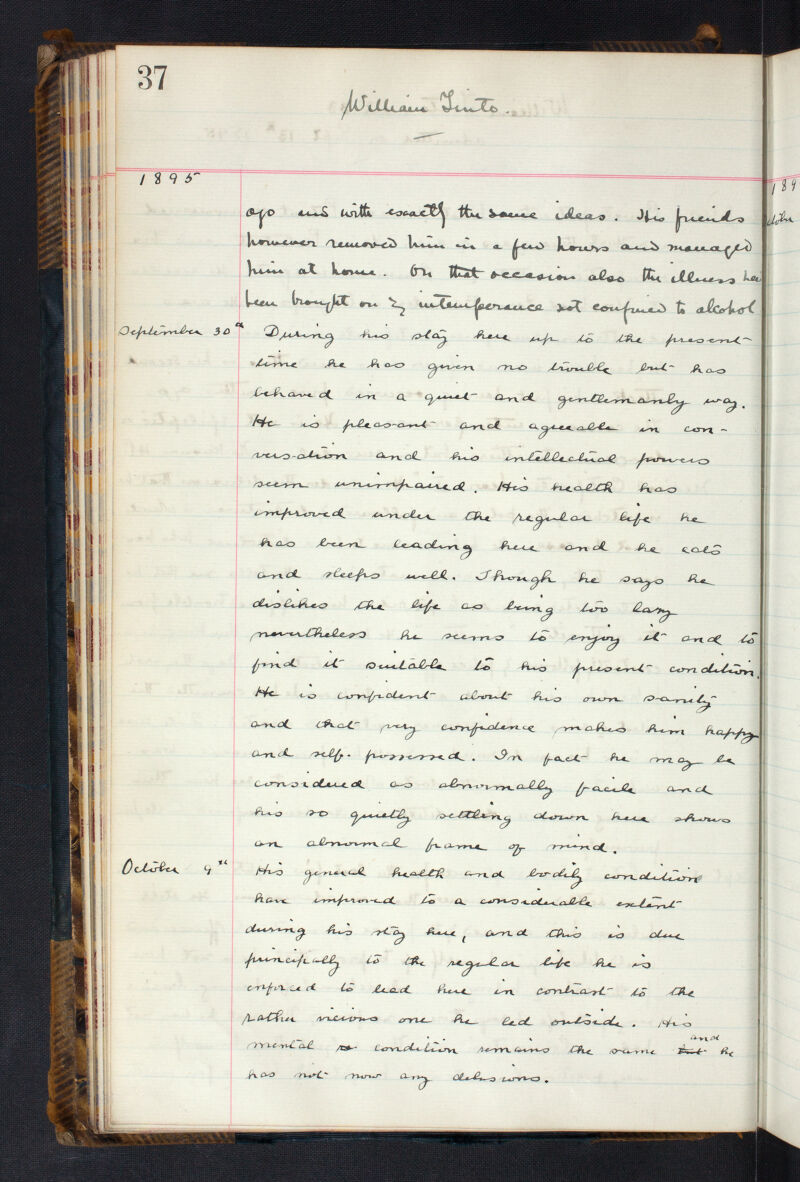 37
William Tinto.
1895
189
ago and with exactly the same ideas. His friends
however removed him in a few hours and managed
him at home. On that occasion also the illness had
been brought on by intemperance not confined to alcohol
September 30th During his stay here up to the present
time he has given no trouble but has
behaved in a quiet and gentlemanly way.
He is pleasant and agreeable in con-
versation and his intellectual powers
seem unimpaired. His health has
improved under the regular life he
has been leading here and he eats
and sleeps well. Though he says he
dislikes the life as being too lazy
nevertheless he seems to enjoy it and to
find it suitable to his present condition.
He is confident about his own sanity
and that very confidence makes him happy
and self-possessed. In fact he may be
considered as abnormally facile and
his so quietly settling down here shows
an abnormal frame of mind.
October 9th His general health and bodily condition
have improved to a considerable extent
during his stay here, and this is due
principally to the regular life he is
enforced to lead here in contrast to the
rather vicious one he led outside. His
mental condition remains the same but and he
has not now any delusions.